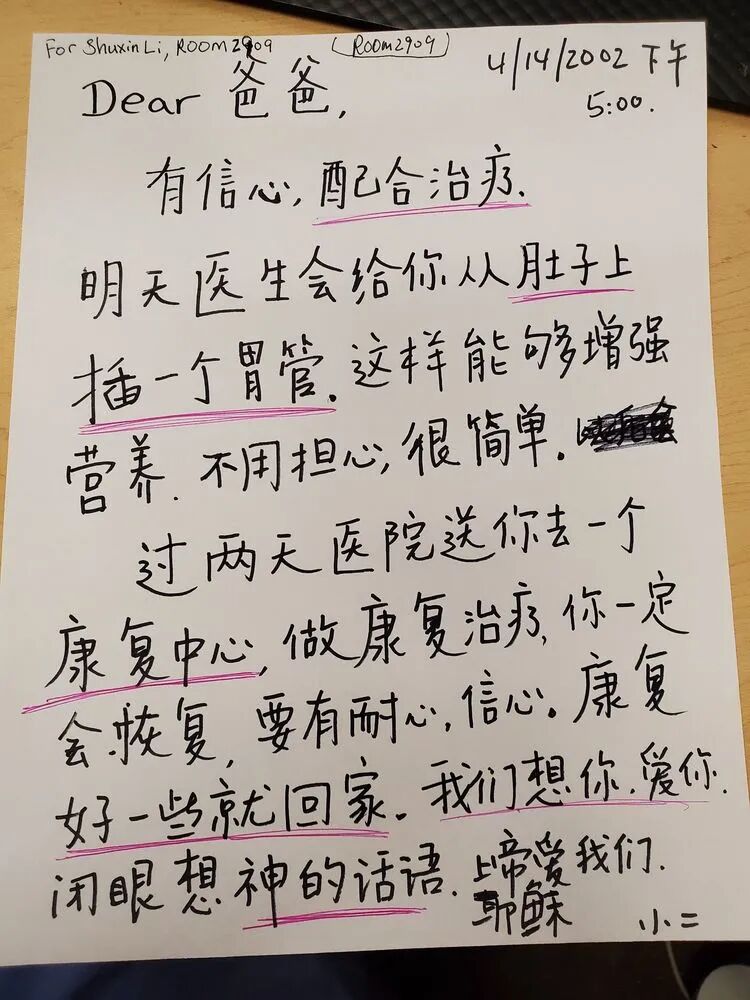 For Shuxin Li, ROOM2909 (ROOM2909)
4/14/2002 下午
5:00.
Dear 爸爸,
有信心,配合治疗.
明天医生会给你从肚子上
插一个胃管.这样能够增强
营养.不用担心,很简单.
过两天医院送你去一个
康复中心,做康复治疗,你一定
会恢复,要有耐心,信心。康复
好一些就回家.我们想你.爱你.
闭眼想神的话语.上帝爱我们.
耶稣
小二